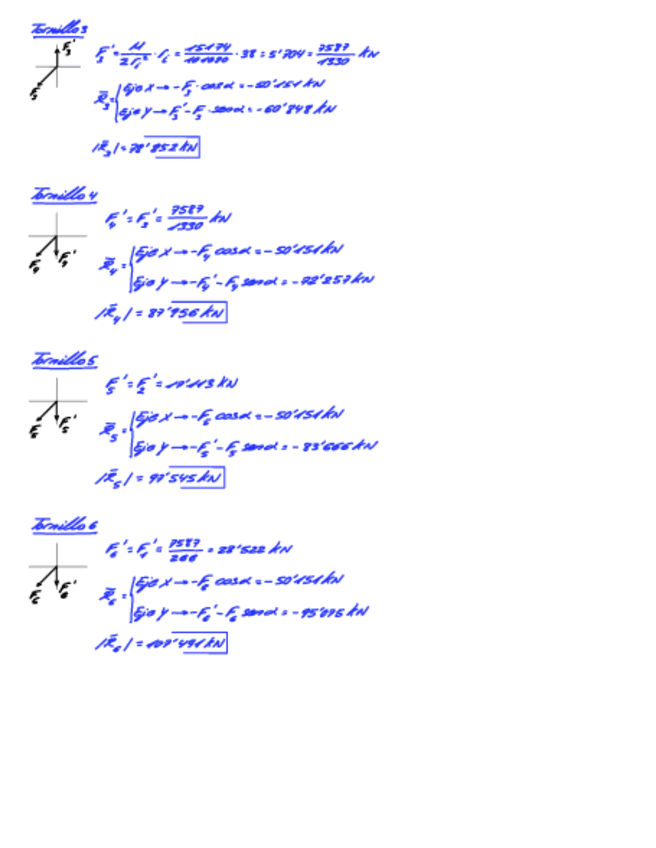 Tornillo 3
F₃'
F₃
F₃' = M / Σrᵢ² · rᵢ = 15174 / 101080 · 38 = 5'704 = 7587 / 1330 kN
R̄₃ = { Eje X → -F₃ · cosα = -50'151 kN
Eje Y → F₃' - F₃ · senα = -60'848 kN
|R̄₃| = 78'852 kN
Tornillo 4
F₄
F₄'
F₄' = F₃' = 7587 / 1330 kN
R̄₄ = { Eje X → -F₄ cosα = -50'151 kN
Eje Y → -F₄' - F₄ senα = -72'257 kN
|R̄₄| = 87'956 kN
Tornillo 5
F₅
F₅'
F₅' = F₂' = 17'113 kN
R̄₅ = { Eje X → -F₅ cosα = -50'151 kN
Eje Y → -F₅' - F₅ senα = -83'666 kN
|R̄₅| = 97'545 kN
Tornillo 6
F₆
F₆'
F₆' = F₁' = 7587 / 266 = 28'522 kN
R̄₆ = { Eje X → -F₆ cosα = -50'151 kN
Eje Y → -F₆' - F₆ senα = -95'075 kN
|R̄₆| = 107'491 kN